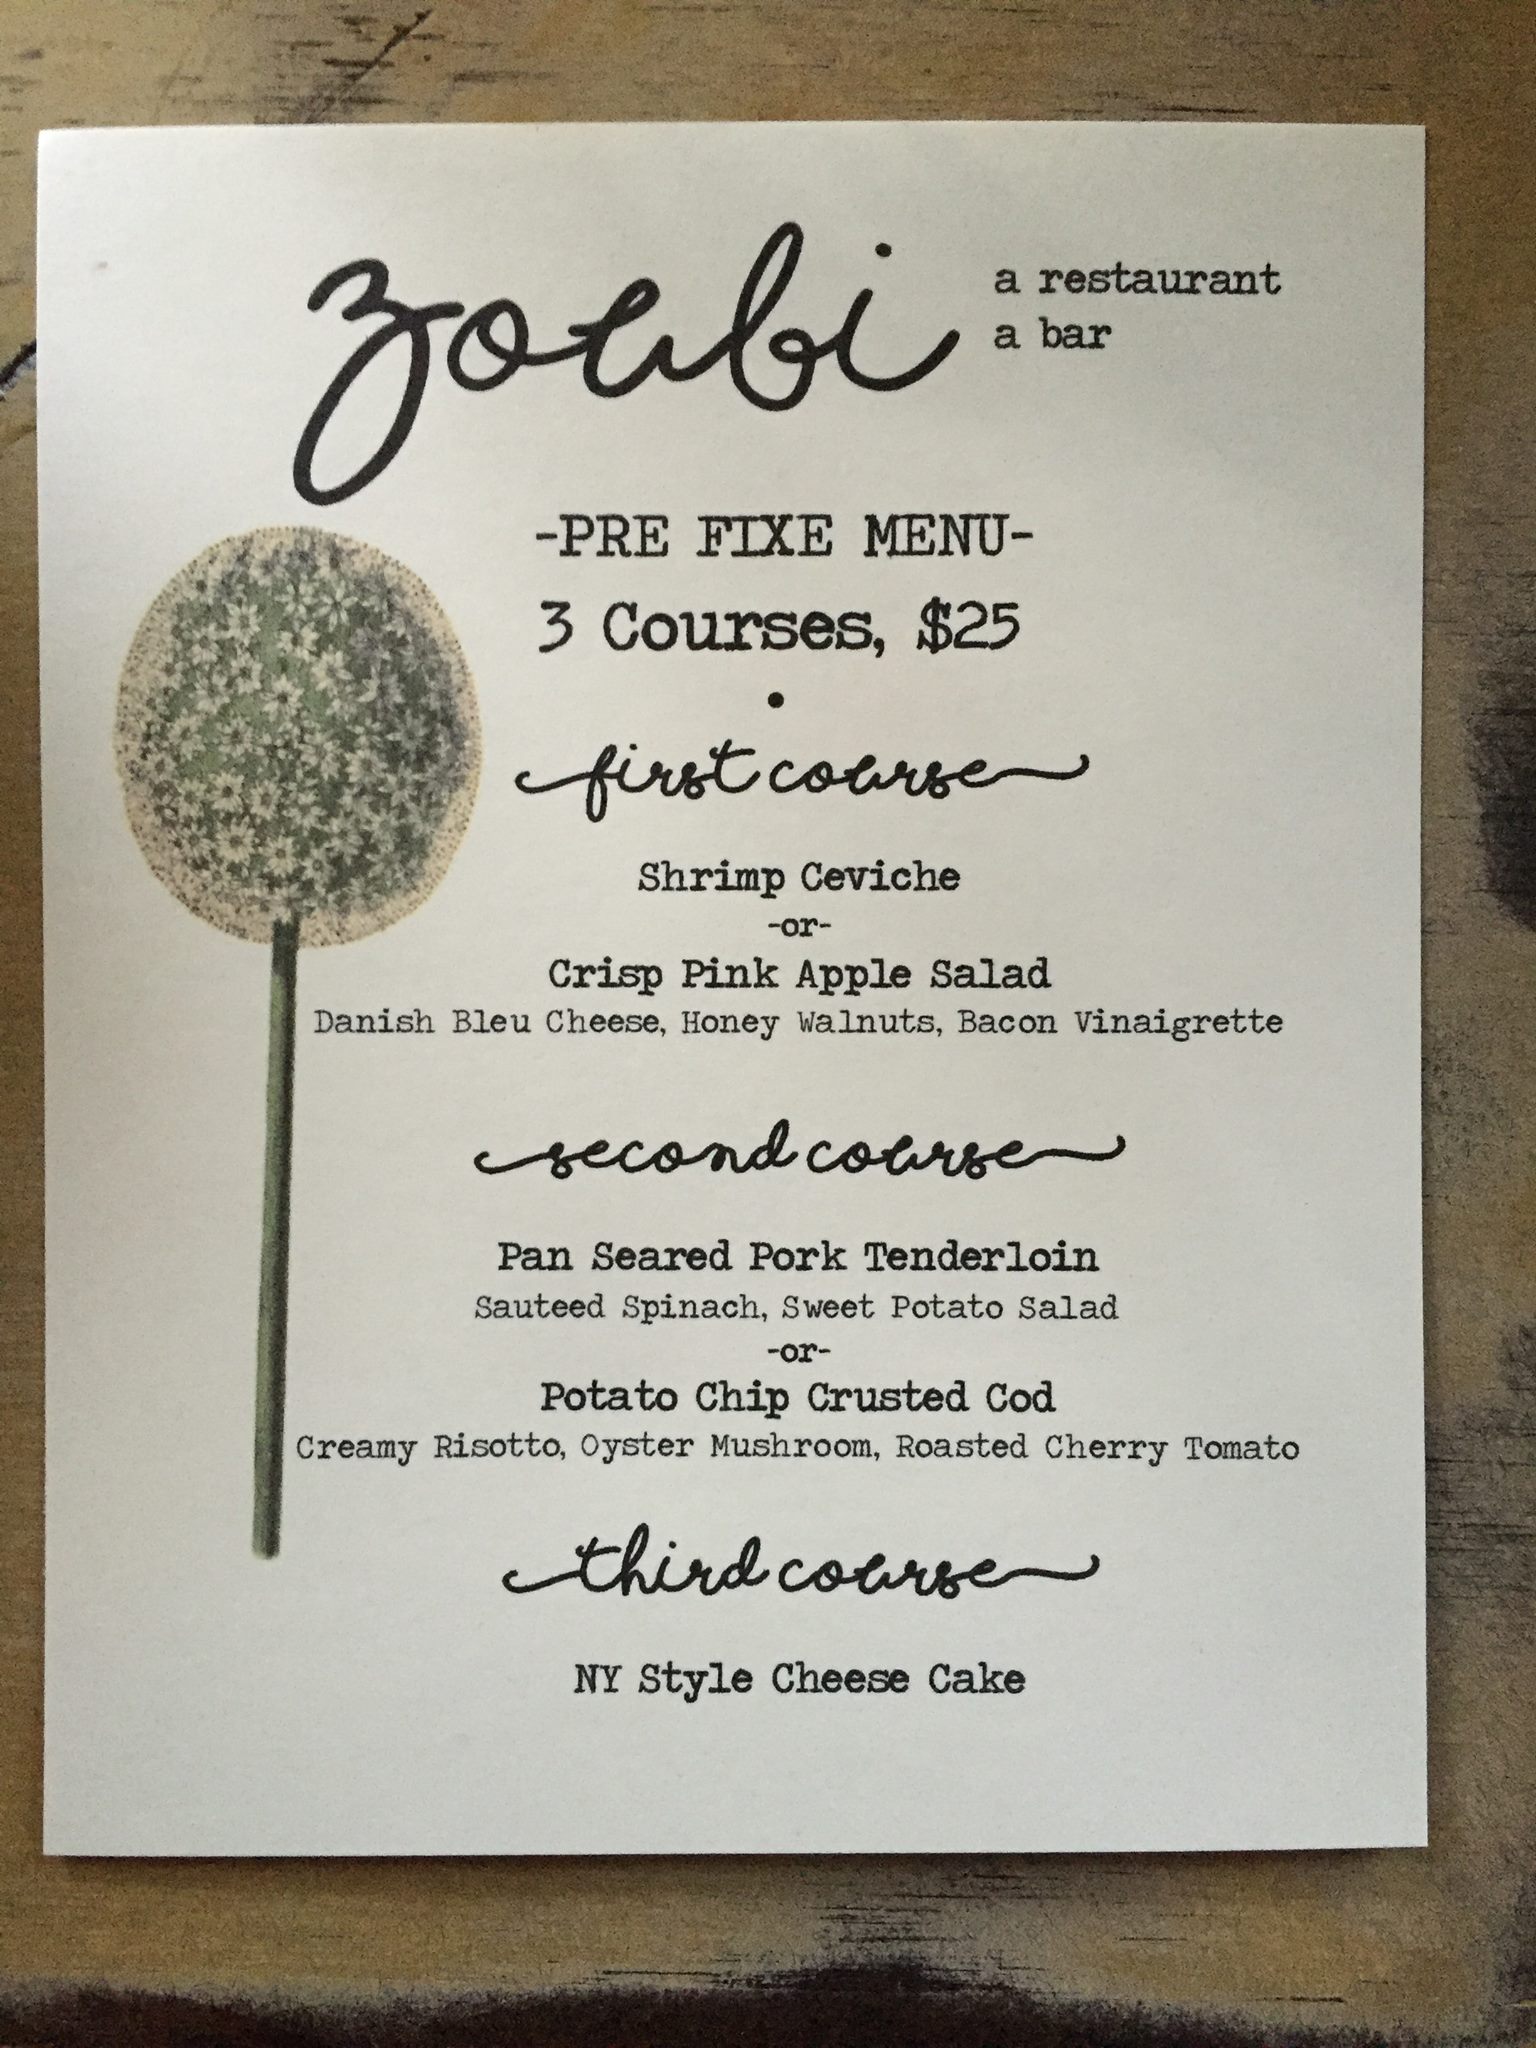 zoubi
a restaurant
a bar
-PRE FIXE MENU-
3 Courses, $25
•
first course
Shrimp Ceviche
-or-
Crisp Pink Apple Salad
Danish Bleu Cheese, Honey Walnuts, Bacon Vinaigrette
second course
Pan Seared Pork Tenderloin
Sauteed Spinach, Sweet Potato Salad
-or-
Potato Chip Crusted Cod
Creamy Risotto, Oyster Mushroom, Roasted Cherry Tomato
third course
NY Style Cheese Cake